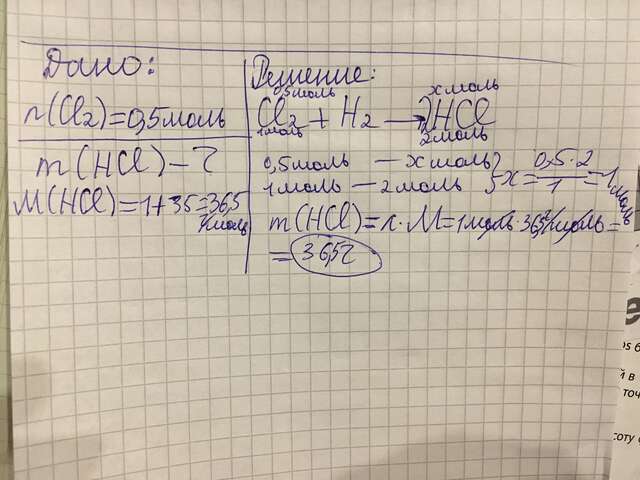 Дано:
n(Cl₂)=0,5моль
m(HCl) – ?
M(HCl)=1+35=36,5
г/моль
Решение:
0,5моль x моль
Cl₂ + H₂ → 2HCl
1моль 2моль
0,5моль – x моль } x = 0,5·2/1 = 1
1моль – 2моль
m(HCl)=n·M=1моль·36,5г/моль=
= 36,5г